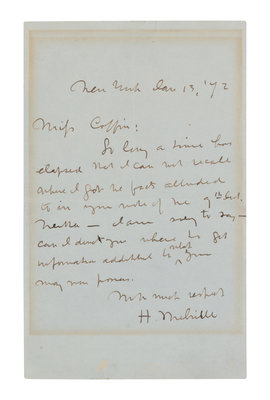 New York Dec 13, '72
Miss Coffin:
So long a time has
elapsed that I can not recall
where I got the facts alluded
to in your note of the 9th Inst.
— I am sorry to say —
can I direct you where to get
information additional to what you
may now possess.
With much respect
H Melville